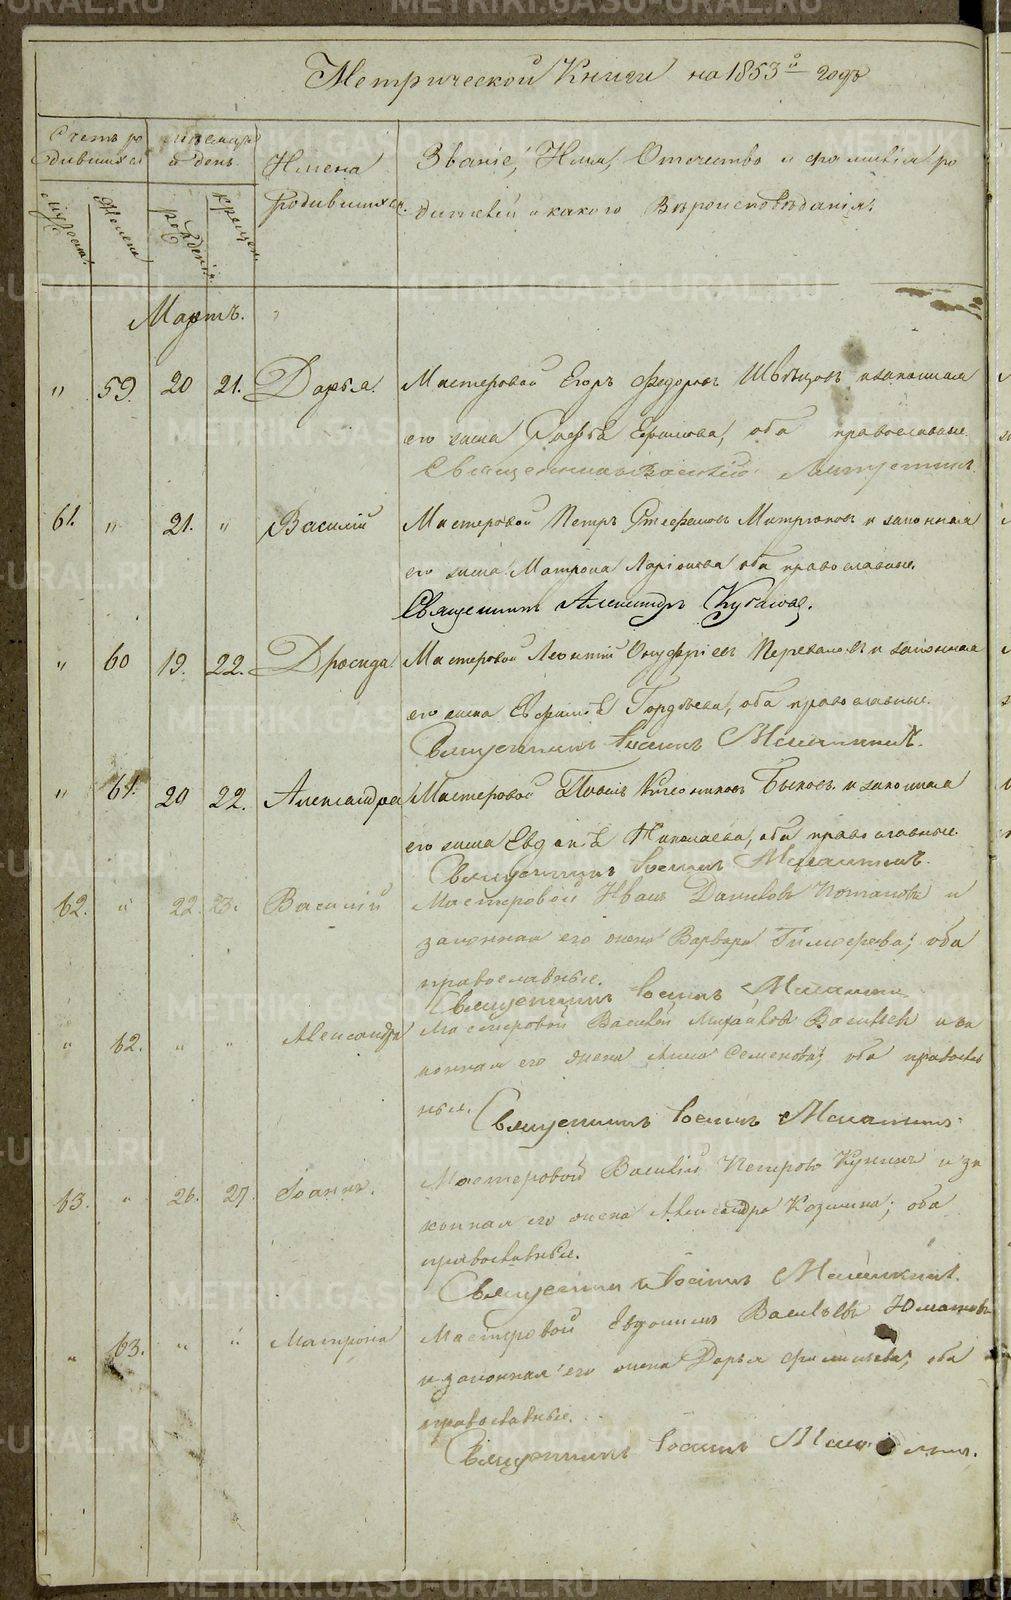 METRIKI.GASO-URAL.RU
Метрической Книги на 1853й годъ
Счетъ ро
дившихся
и день
Имена
родившихся.
Званіе, Имя, Отчество и фамилія ро
дителей и какого Вѣроисповѣданія.
Мужеск.
Женска
рожденія
крещен.
Мартъ.
" 59. 20 21. Дарья. Мастеровой Егоръ Федоровъ Швецовъ и законная
его жена Ефимова, оба православные
Священникъ Василій
61. " 21. " Василій Мастеровой Петръ Стефановъ Митрюковъ и законная
его жена Матрона Ларіонова оба православные.
Священникъ Александръ
" 60 19. 22. Дросида Мастеровой Леонтій Онуфріевъ и законная
его жена Евфимія Гордѣева, оба православные.
Священникъ Іоаннъ
" 61. 20 22. Александра Мастеровой Павелъ Быковъ и законная
его жена Евдокія Николаева, оба православные
Священникъ Іоаннъ
62. " 22. 23. Василій Мастеровой Иванъ Даниловъ Потаповъ и
законная его жена Варвара Тимофеева; оба
православные.
Священникъ Іоаннъ
" 62. " " Александра Мастеровой Василій Михайловъ Васильевъ и за
конная его жена Анна Семенова; оба православ
ные.
Священникъ Іоаннъ
63. " 26. 27. Іоаннъ. Мастеровой Василій Петровъ и за
конная его жена Александра Козмина; оба
православные.
Священникъ Іоаннъ
" 63. " " Матрона Мастеровой Евдокимъ Васильевъ
и законная его жена Дарья Филипьева; оба
православные.
Священникъ Іоаннъ